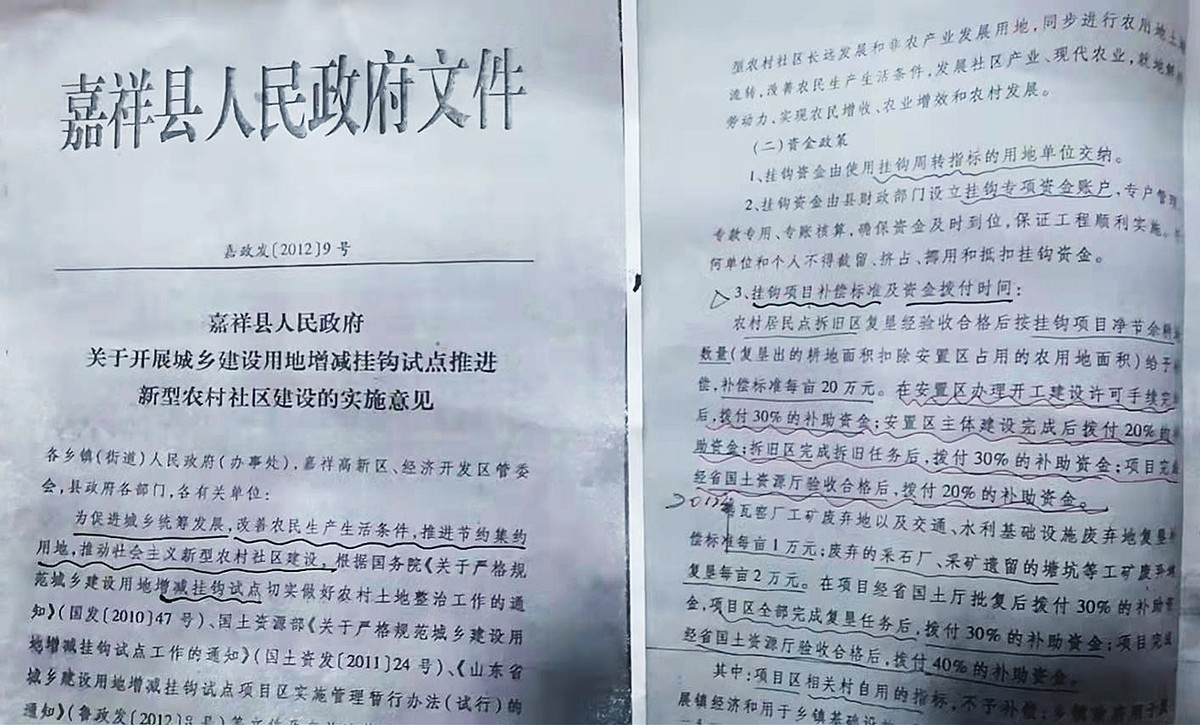 嘉祥县人民政府文件
嘉政发〔2012〕9号
嘉祥县人民政府
关于开展城乡建设用地增减挂钩试点推进
新型农村社区建设的实施意见
各乡镇(街道)人民政府(办事处),嘉祥高新区、经济开发区管委
会,县政府各部门,各有关单位:
为促进城乡统筹发展,改善农民生产生活条件,推进节约集约
用地,推动社会主义新型农村社区建设,根据国务院《关于严格规
范城乡建设用地增减挂钩试点切实做好农村土地整治工作的通
知》(国发〔2010〕47号)、国土资源部《关于严格规范城乡建设用
地增减挂钩试点工作的通知》(国土资发〔2011〕24号)、《山东省
城乡建设用地增减挂钩试点项目区实施管理暂行办法(试行)的
通知》(鲁政发〔2012〕 号)等文件
型农村社区长远发展和非农产业发展用地,同步进行农用地土
流转,改善农民生产生活条件,发展社区产业、现代农业,就地
劳动力,实现农民增收、农业增效和农村发展。
(二)资金政策
1、挂钩资金由使用挂钩周转指标的用地单位交纳。
2、挂钩资金由县财政部门设立挂钩专项资金账户,专户管理
专款专用、专账核算,确保资金及时到位,保证工程顺利实施。
何单位和个人不得截留、挤占、挪用和抵扣挂钩资金。
3、挂钩项目补偿标准及资金拨付时间:
农村居民点拆旧区复垦经验收合格后按挂钩项目净节余耕
数量(复垦出的耕地面积扣除安置区占用的农用地面积)给予
偿,补偿标准每亩20万元。在安置区办理开工建设许可手续完
后,拨付30%的补助资金;安置区主体建设完成后拨付20%的
助资金;拆旧区完成拆旧任务后,拨付30%的补助资金;项目完
经省国土资源厅验收合格后,拨付20%的补助资金。
瓦窑厂工矿废弃地以及交通、水利基础设施废弃地复垦
偿标准每亩1万元;废弃的采石厂、采矿遗留的塘坑等工矿废弃
复垦每亩2万元。在项目经省国土厅批复后拨付30%的补助
金,项目区全部完成复垦任务后,拨付30%的补助资金;项目完
经省国土资源厅验收合格后,拨付40%的补助资金。
其中:项目区相关村自用的指标,不予补偿;乡镇政府用于
展镇经济和用于乡镇基础设